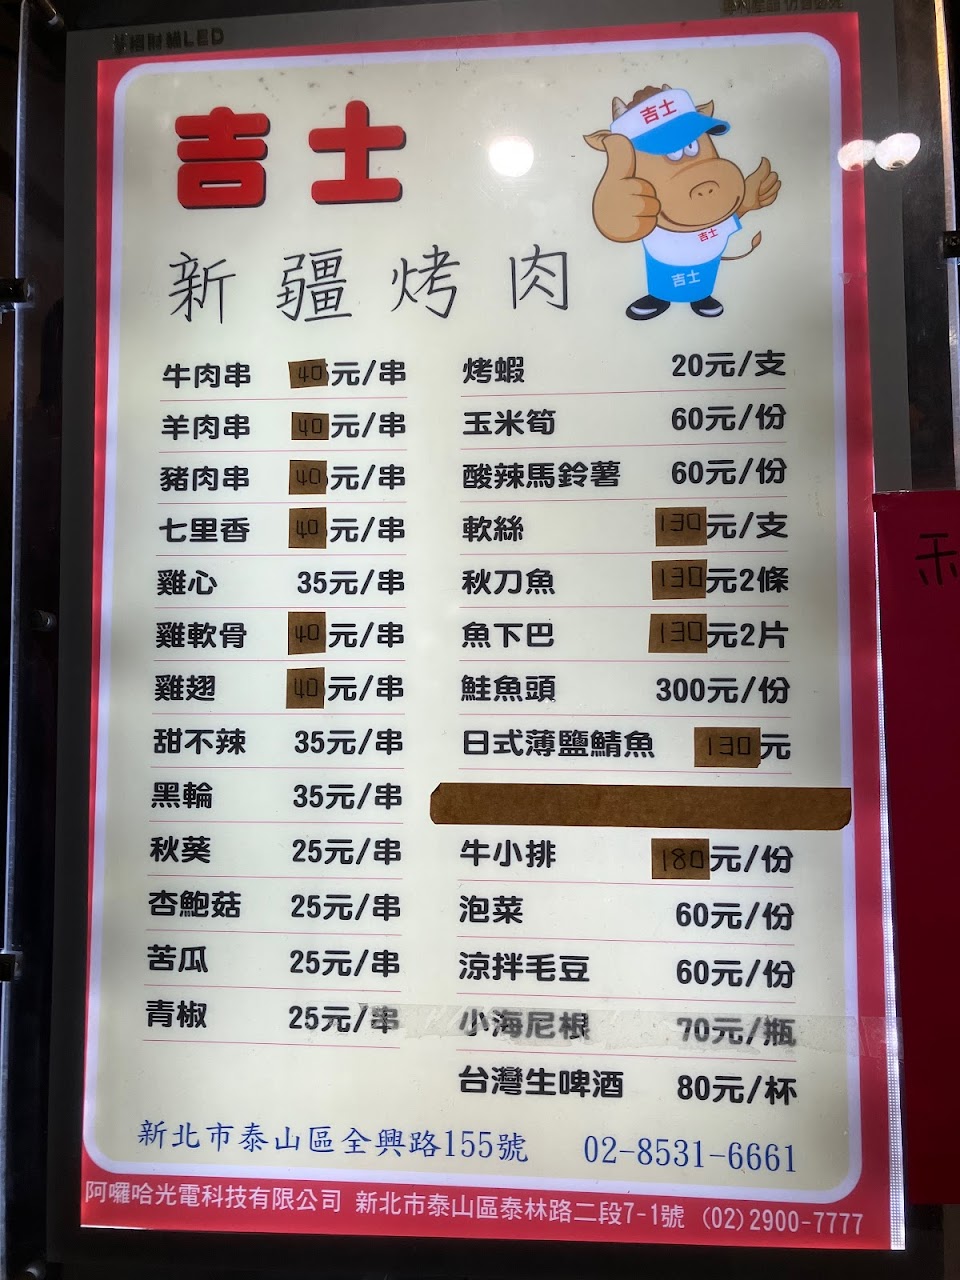 招財貓LED
吉士
吉士
吉士
吉士
新疆烤肉
牛肉串 40元/串
羊肉串 40元/串
豬肉串 40元/串
七里香 40元/串
雞心 35元/串
雞軟骨 40元/串
雞翅 40元/串
甜不辣 35元/串
黑輪 35元/串
秋葵 25元/串
杏鮑菇 25元/串
苦瓜 25元/串
青椒 25元/串
烤蝦 20元/支
玉米筍 60元/份
酸辣馬鈴薯 60元/份
軟絲 130元/支
秋刀魚 130元2條
魚下巴 130元2片
鮭魚頭 300元/份
日式薄鹽鯖魚 130元
牛小排 180元/份
泡菜 60元/份
涼拌毛豆 60元/份
小海尼根 70元/瓶
台灣生啤酒 80元/杯
新北市泰山區全興路155號 02-8531-6661
阿囉哈光電科技有限公司 新北市泰山區泰林路二段7-1號 (02)2900-7777